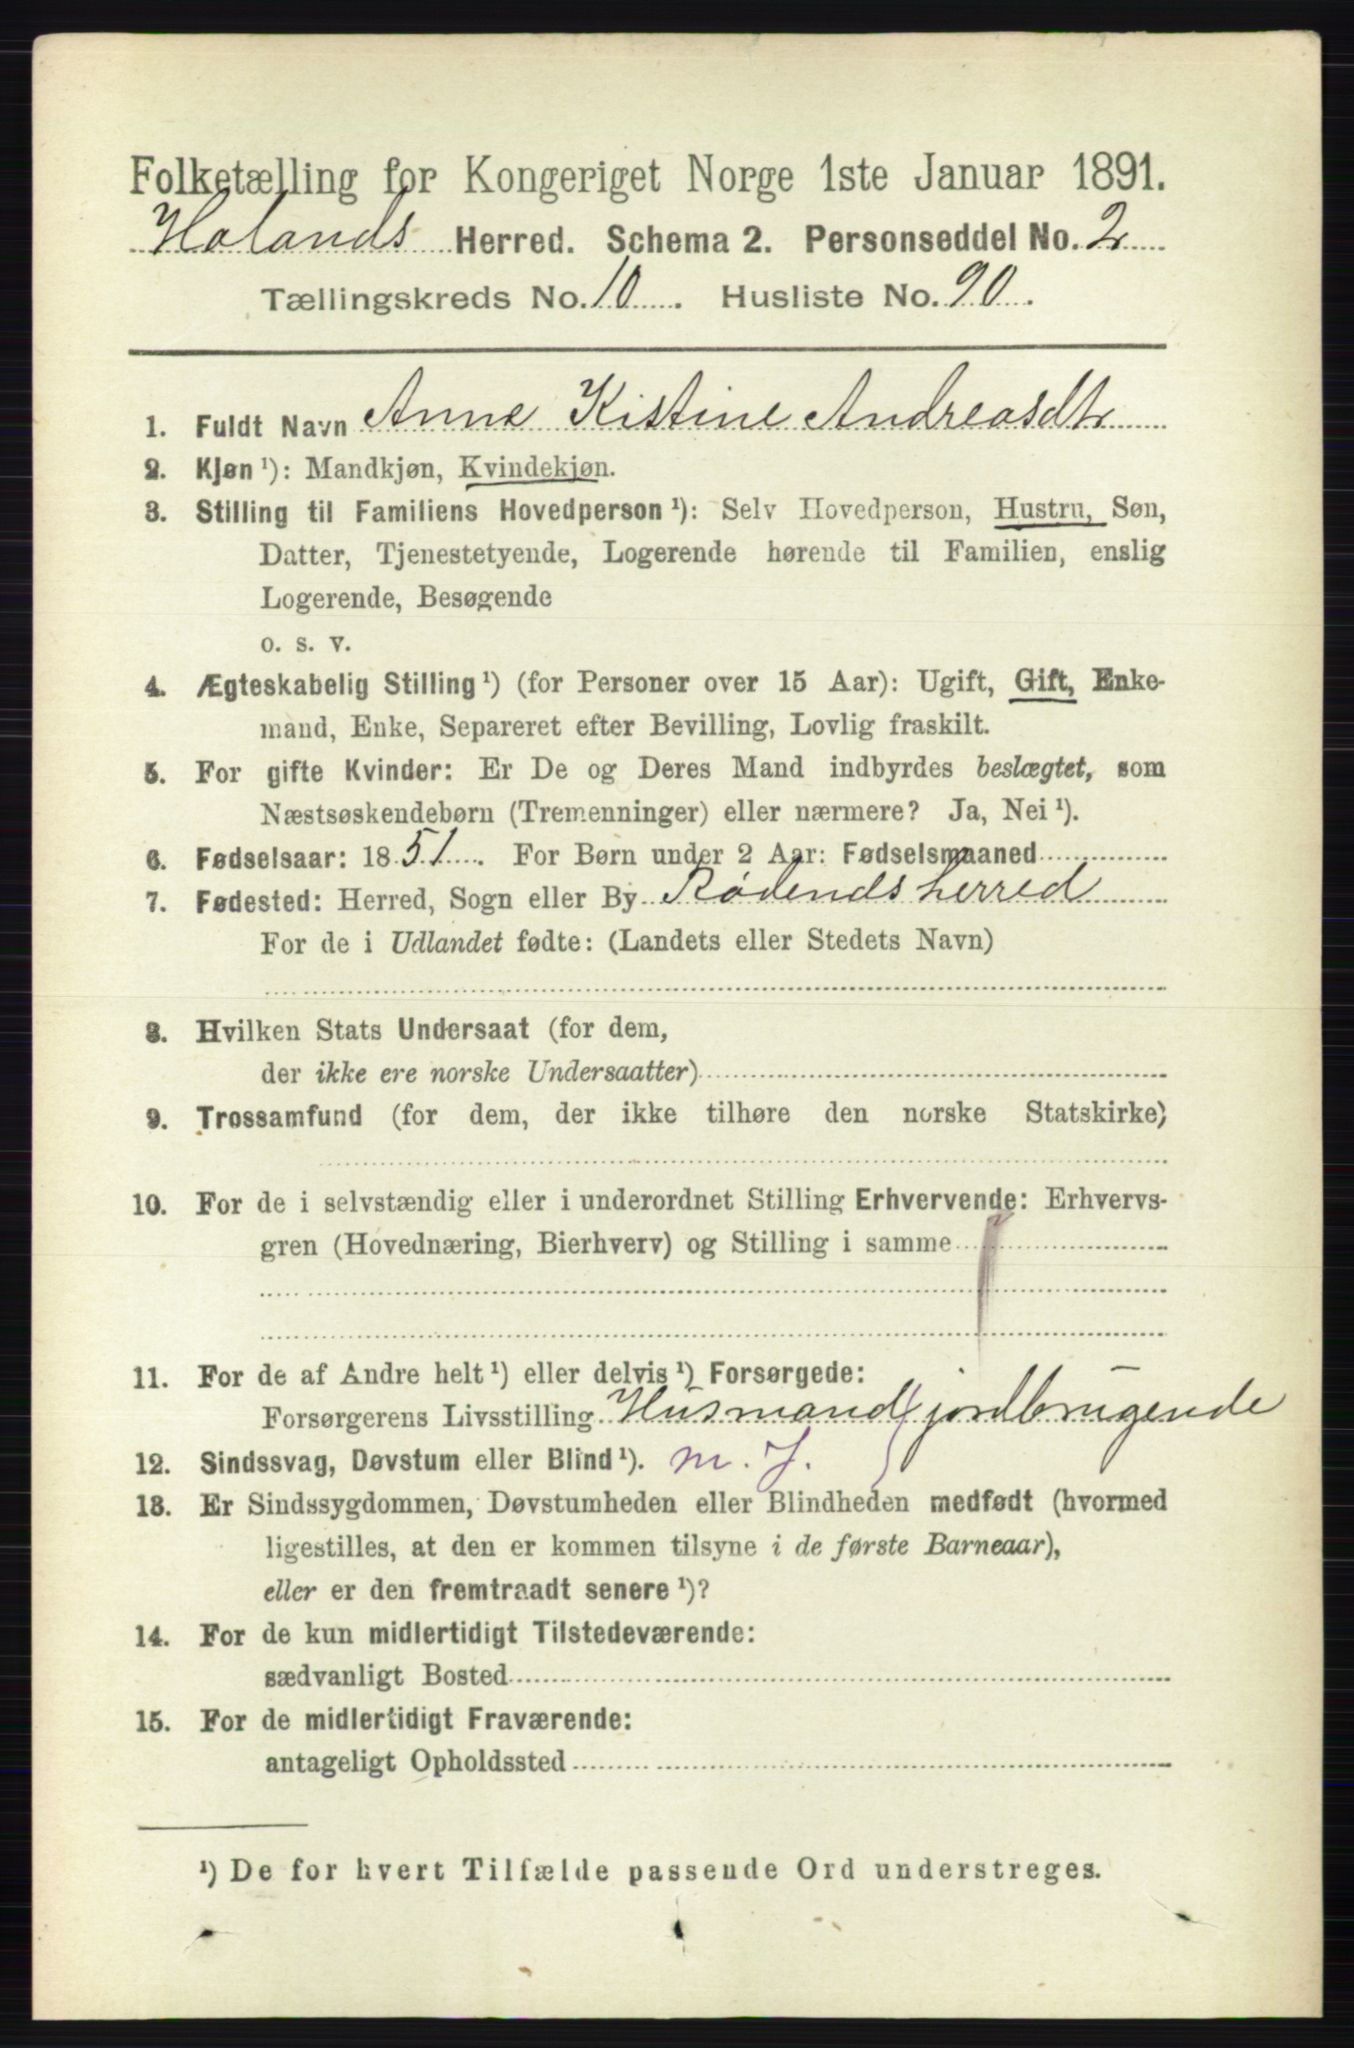 Folketælling for Kongeriget Norge 1ste Januar 1891.
Holands Herred. Schema 2. Personseddel No. 2
Tællingskreds No. 10. Husliste No. 90.
1. Fuldt Navn Anne Kistine Andreasdtr
2. Kjøn ¹): Mandkjøn, Kvindekjøn.
3. Stilling til Familiens Hovedperson ¹): Selv Hovedperson, Hustru, Søn,
Datter, Tjenestetyende, Logerende hørende til Familien, enslig
Logerende, Besøgende
o. s. v.
4. Ægteskabelig Stilling ¹) (for Personer over 15 Aar): Ugift, Gift, Enke-
mand, Enke, Separeret efter Bevilling, Lovlig fraskilt.
5. For gifte Kvinder: Er De og Deres Mand indbyrdes beslægtet, som
Næstsøskendebørn (Tremenninger) eller nærmere? Ja, Nei ¹).
6. Fødselsaar: 1851. For Børn under 2 Aar: Fødselsmaaned
7. Fødested: Herred, Sogn eller By Rødends herred
For de i Udlandet fødte: (Landets eller Stedets Navn)
8. Hvilken Stats Undersaat (for dem,
der ikke ere norske Undersaatter)
9. Trossamfund (for dem, der ikke tilhøre den norske Statskirke)
10. For de i selvstændig eller i underordnet Stilling Erhvervende: Erhvervs-
gren (Hovednæring, Bierhverv) og Stilling i samme
11. For de af Andre helt ¹) eller delvis ¹) Forsørgede:
Forsørgerens Livsstilling Husmand jordbrugende
12. Sindssvag, Døvstum eller Blind ¹). m. J.
13. Er Sindssygdommen, Døvstumheden eller Blindheden medfødt (hvormed
ligestilles, at den er kommen tilsyne i de første Barneaar),
eller er den fremtraadt senere ¹)?
14. For de kun midlertidigt Tilstedeværende:
sædvanligt Bosted
15. For de midlertidigt Fraværende:
antageligt Opholdssted
¹) De for hvert Tilfælde passende Ord understreges.